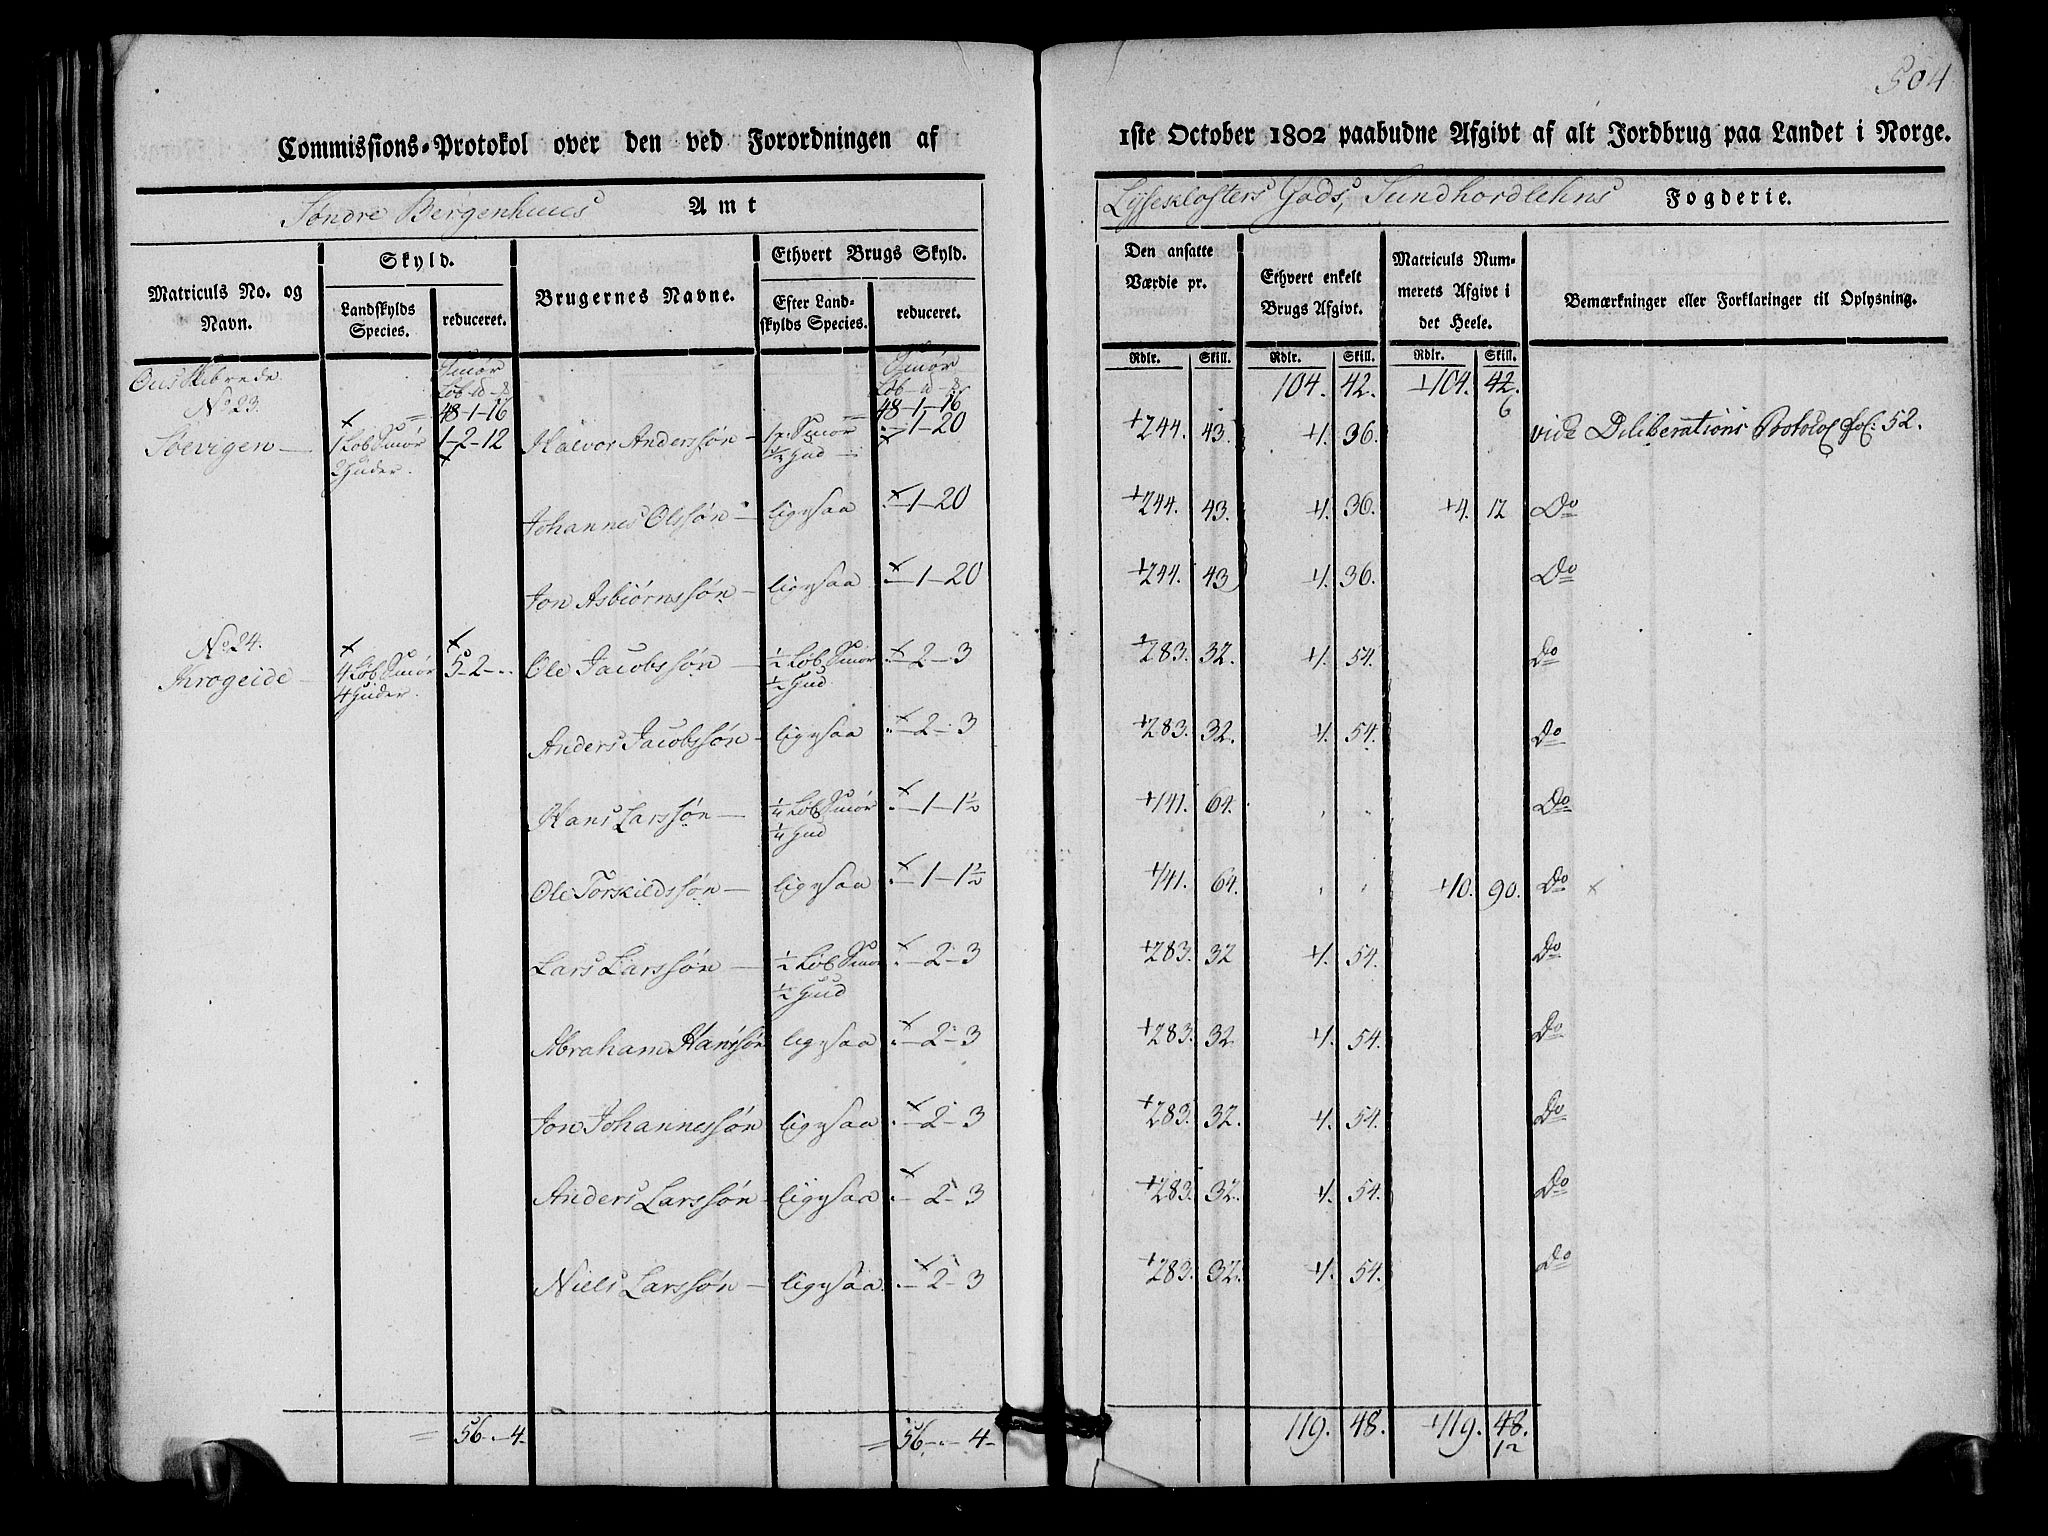 504
Commissions-Protokol over den ved Forordningen af 1ste October 1802 paabudne Afgivt af alt Jordbrug paa Landet i Norge.
Søndre Bergenhuus Amt Lyseklosters Gods, Sundhordlehns Fogderie.
Matriculs No. og Navn. Skyld. Landskylds Species. reduceret. Brugernes Navne. Ethvert Brugs Skyld. Efter Landskylds Species. reduceret. Den ansatte Værdie pr. Ethvert enkelt Brugs Afgivt. Matriculs Nummerets Afgivt i det Heele. Bemærkninger eller Forklaringer til Oplysning.
Rdlr. Skill. Rdlr. Skill. Rdlr. Skill.
Ous Skibrede Smør Smør
48-1-16 48-1-16 104. 42. +104. 42.
6
No. 23.
Søevigen 1 Løb Smør 1-2-12 Halvor Anderssøn Smør -1-20 +244. 43. +1. 36. vide Deliberations Protocol fol: 52.
2 Huder. Hud
Johannes Olssøn ligesaa -1-20 +244. 43. +1. 36. +4. 12 Do
Jon Asbiørnssøn ligesaa -1-20 +244. 43 +1. 36. Do
No. 24.
Krogeide 4 Løb Smør 5-2-.. Ole Jacobssøn ½ Løb Smør -2-3 +283. 32. +1. 54. Do
4 Huder. ½ Hud
Anders Jacobssøn ligesaa -2-3 +283. 32. +1. 54. Do
Hans Larssøn ¼ Løb Smør -1-1½ +141. 64. Do
¼ Hud
Ole Torskildssøn ligesaa -1-1½ +141. 64. +10. 90. Do
Lars Larssøn ½ Løb Smør -2-3 +283. 32 +1. 54. Do
½ Hud
Abraham Hanssøn ligesaa -2-3 +283. 32 +1. 54. Do
Jon Johannessøn ligesaa -2-3 +283. 32. +1. 54. Do
Anders Larssøn ligesaa -2-3 +283. 32. +1. 54. Do
Niels Larssøn ligesaa -2-3 +283. 32. +1. 54. Do
= 56.-4- = 56-.-4- 119. 48. +119. 48.
12